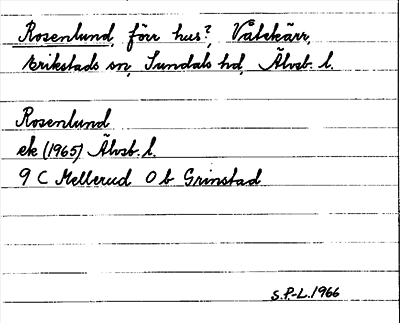 Rosenlund, förr hus?, Våtekärr,
Erikstads sn, Sundals hd, Älvsb. l.
Rosenlund
ek (1965) Älvsb. l.
9 C Mellerud 0 b Grinstad
S.P-L. 1966